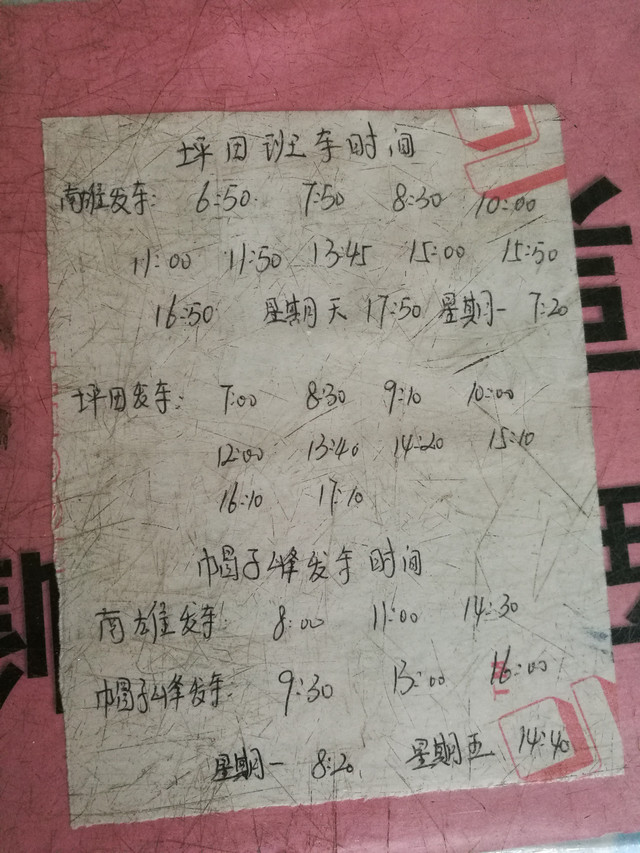 坪田班车时间
南雄发车: 6:50 7:50 8:30 10:00
11:00 11:50 13:45 15:00 15:50
16:50 星期天 17:50 星期一 7:20
坪田发车: 7:00 8:30 9:10 10:00
12:00 13:40 14:20 15:10
16:10 17:10
帽子峰发车时间
南雄发车: 8:00 11:00 14:30
帽子峰发车: 9:30 13:00 16:00
星期一 8:20 星期五 14:40